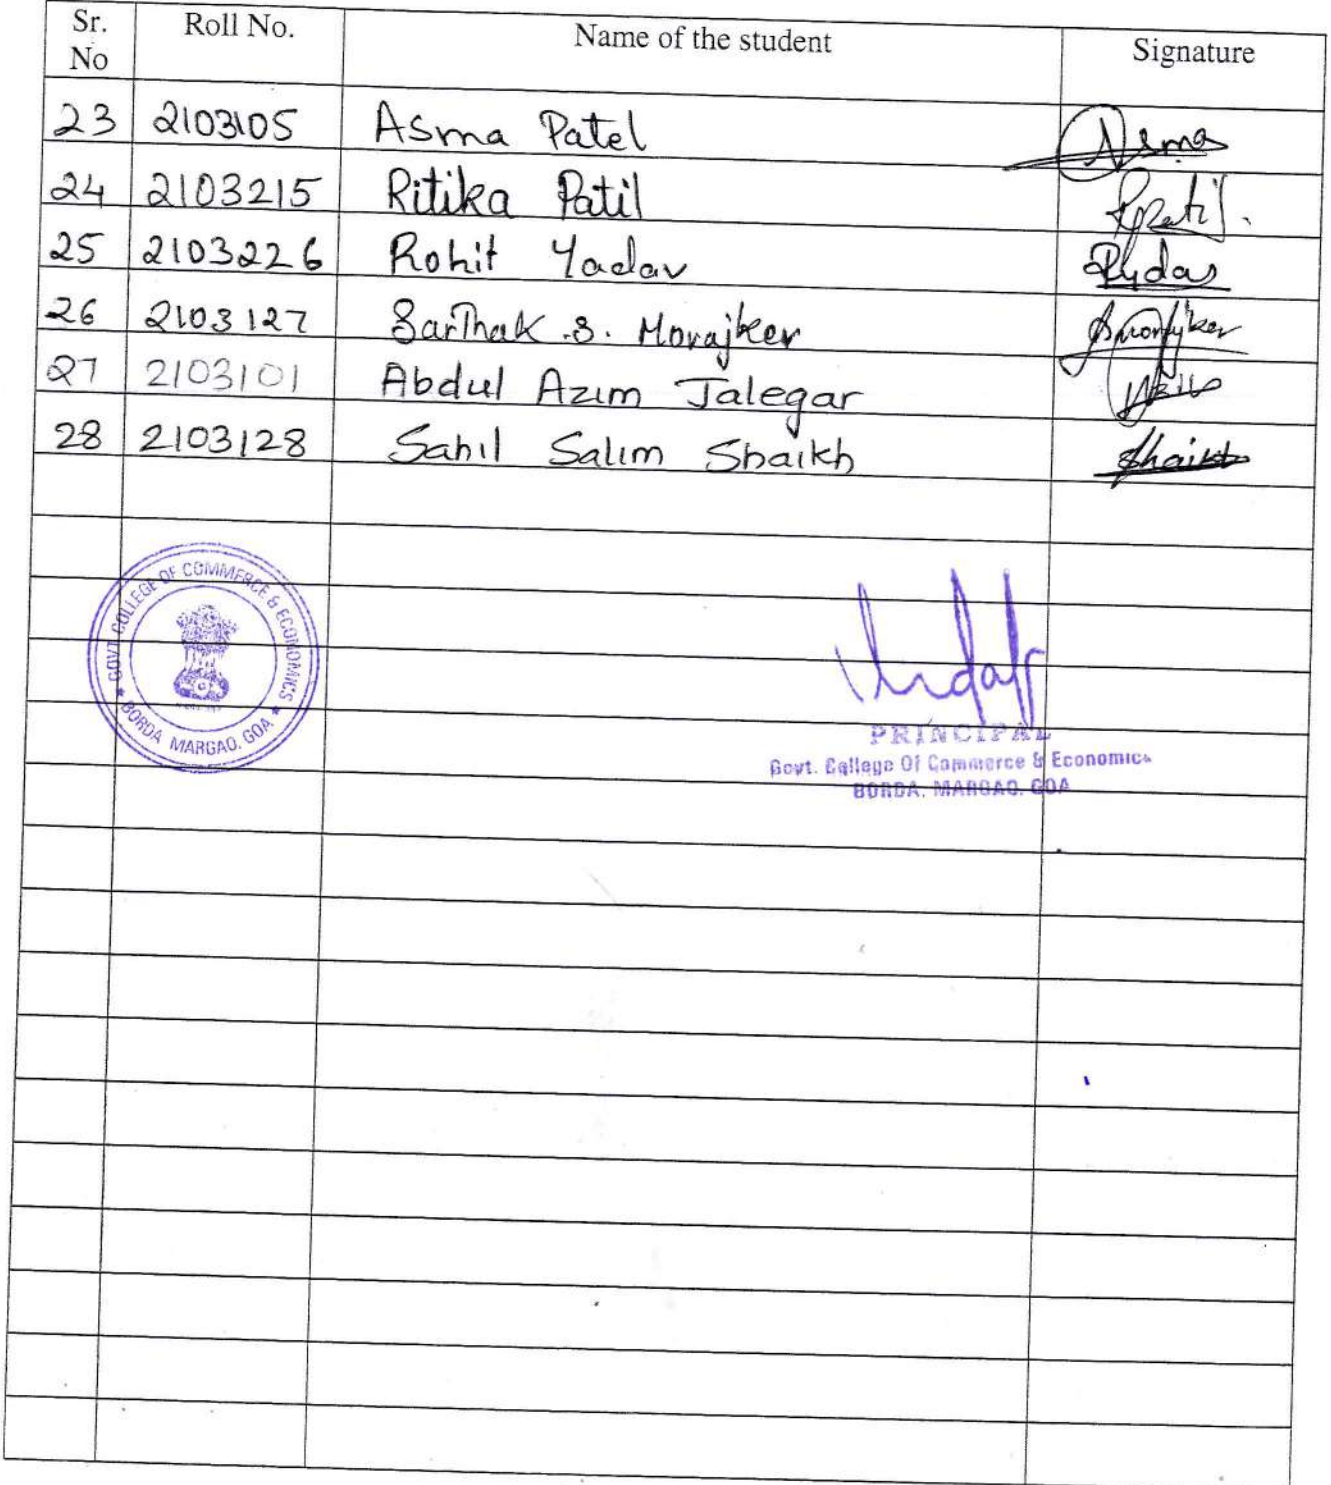 Sr. No Roll No. Name of the student Signature
23 2103105 Asma Patel Asma
24 2103215 Ritika Patil RPatil.
25 2103226 Rohit Yadav
26 2103127 Sarthak .S. Morajker
27 2103101 Abdul Azim Jalegar
28 2103128 Sahil Salim Shaikh Shaikh
GOVT. COLLEGE OF COMMERCE & ECONOMICS
★ BORDA MARGAO. GOA ★
PRINCIPAL
Govt. College Of Commerce & Economics
BORDA, MARGAO, GOA